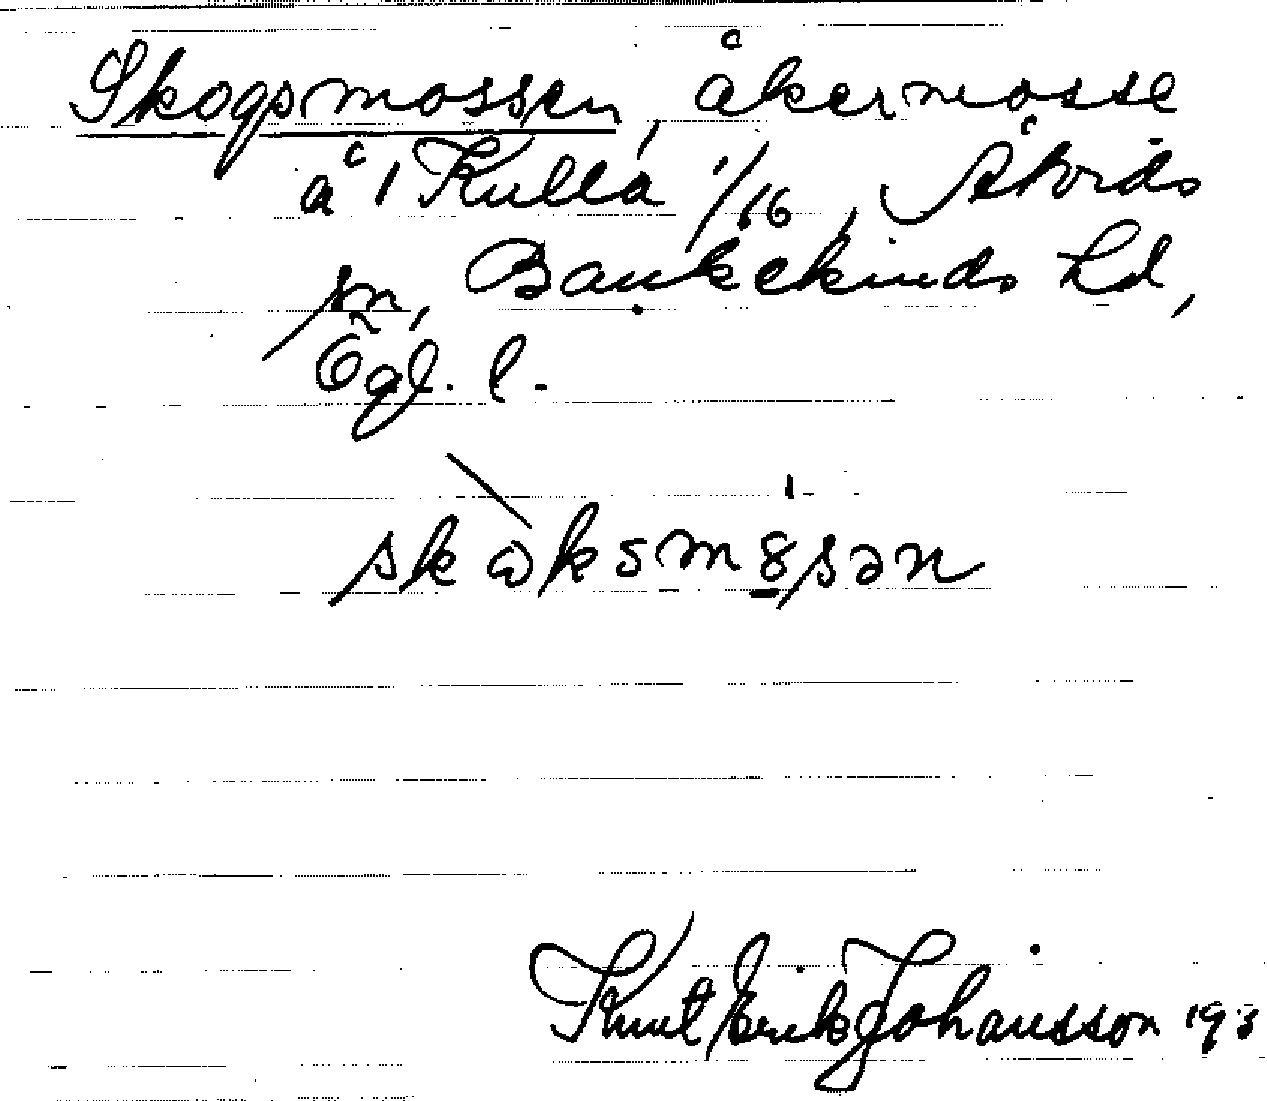 Skogsmossen, åkermosse
å 1 Kulla 1/16, Åtvids
sn, Bankekinds hd,
Ögl. l.
skωksm8sən
Knut Erik Johansson 193